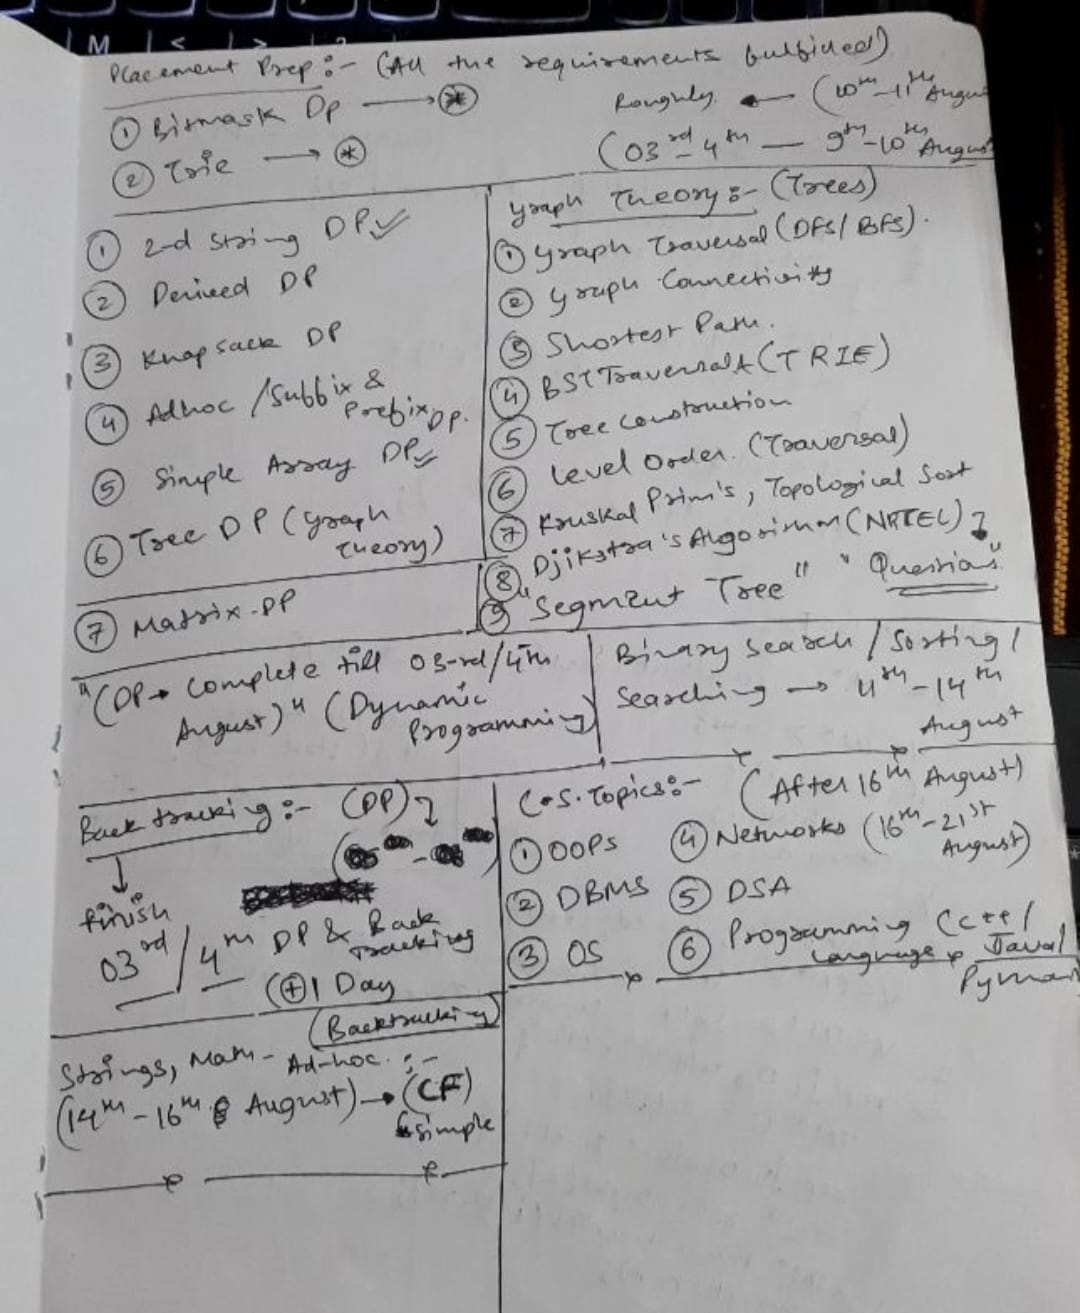 M < > ?
Placement Prep :- (All the requirements fulfilled)
① Bitmask Dp → *
② Trie → *
Roughly ← (10th-11th Augu
(03rd-4th — 9th-10th August
① 2-d string DP ✓
② Derived DP
③ Knapsack DP
④ Adhoc /Suffix &
Prefix DP.
⑤ Simple Array DP ✓
⑥ Tree DP (Graph
Theory)
⑦ Matrix-DP
Graph Theory :- (Trees)
① Graph Traversal (DFS/BFS).
② Graph Connectivity
③ Shortest Path.
④ BST Traversal (TRIE)
⑤ Tree Construction
⑥ Level Order. (Traversal)
⑦ Kruskal Prim's, Topological Sort
⑧ Djikstra's Algorithm (NPTEL)
⑨ "Segment Tree" "Questions"
"(DP → Complete till 03-rd/4th
August)" (Dynamic
Programming)
Binary Search / Sorting /
Searching → 11th-14th
August
Backtracking :- (DP)
↓
finish
03rd/4th DP & Back
tracking
(+) 1 Day
(Backtracking)
C.S. Topics :- (After 16th August)
① OOPs ④ Networks (16th-21st
August)
② DBMS ⑤ DSA
③ OS ⑥ Programming (C++/
Language Java/
Python
Strings, Math- Ad-hoc. :-
(14th-16th August) → (CF)
simple